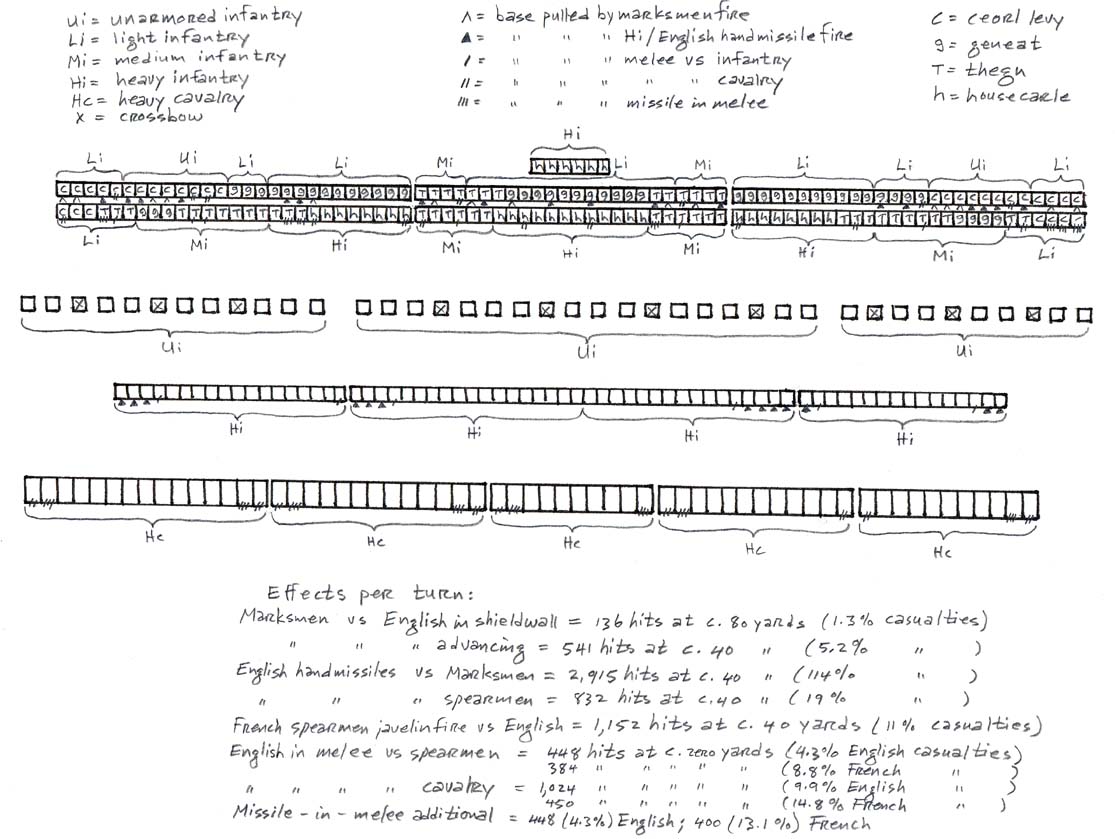 ui = unarmored infantry
Li = light infantry
Mi = medium infantry
Hi = heavy infantry
Hc = heavy cavalry
x = crossbow
^ = base pulled by marksmen fire
▲ = " " " Hi/English handmissile fire
/ = " " " melee vs infantry
// = " " " " cavalry
/// = " " " missile in melee
c = ceorl levy
g = geneat
T = thegn
h = housecarle
Hi
h h h h h h
Li Ui Li Li Mi Li Mi Hi Li Ui Li
Li Mi Hi Mi Hi Mi Hi Mi Li
Ui Ui Ui
Hi Hi Hi Hi
Hc Hc Hc Hc Hc
Effects per turn:
Marksmen vs English in shieldwall = 136 hits at c. 80 yards (1.3% casualties)
" " " advancing = 541 hits at c. 40 " (5.2% " )
English handmissiles vs Marksmen = 2,915 hits at c. 40 " (114% " )
" " " spearmen = 832 hits at c. 40 " (19% " )
French spearmen javelinfire vs English = 1,152 hits at c. 40 yards (11% casualties)
English in melee vs spearmen = 448 hits at c. zero yards (4.3% English casualties)
384 " " " " " (8.8% French " )
" " " " cavalry = 1,024 " " " " " (9.9% English " )
450 " " " " " (14.8% French " )
Missile-in-melee additional = 448 (4.3%) English; 400 (13.1%) French